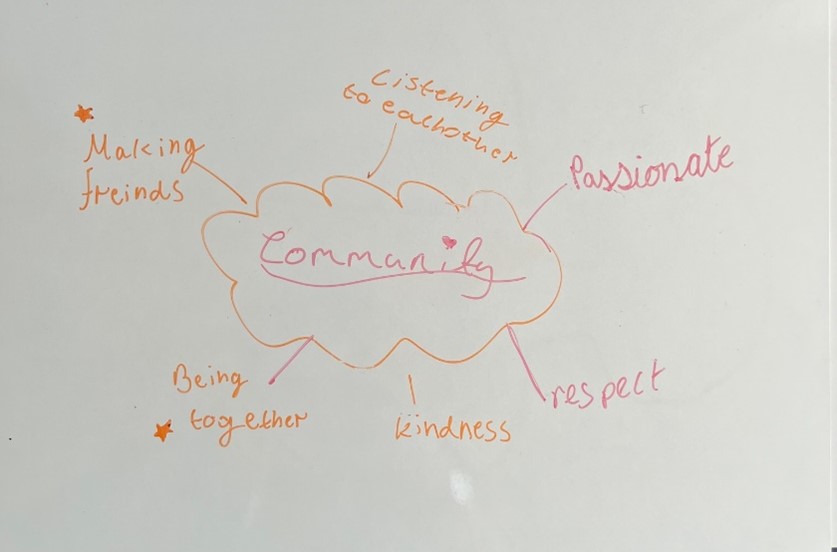 Listening
to eachother
Making
freinds
Passionate
Community
Being
together
kindness
respect